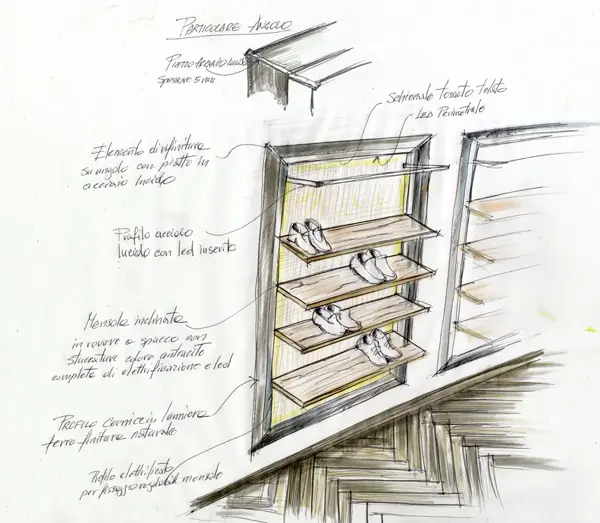 PARTICOLARE ANGOLO
PIATTO ACCIAIO LUCIDO
SPESSORE 5 mm
Schienale tessuto telato
LED Perimetrale
Elemento di rifinitura
su angolo con piatto in
acciaio lucido
Profilo acciaio
lucido con led inserito
Mensola inclinata
in rovere a spacco con
stuccature colore antracite
complete di elettrificazione e led
PROFILO Cornice in lamiera
ferro finitura naturale
Profilo elettrificato
per fissaggio mensole